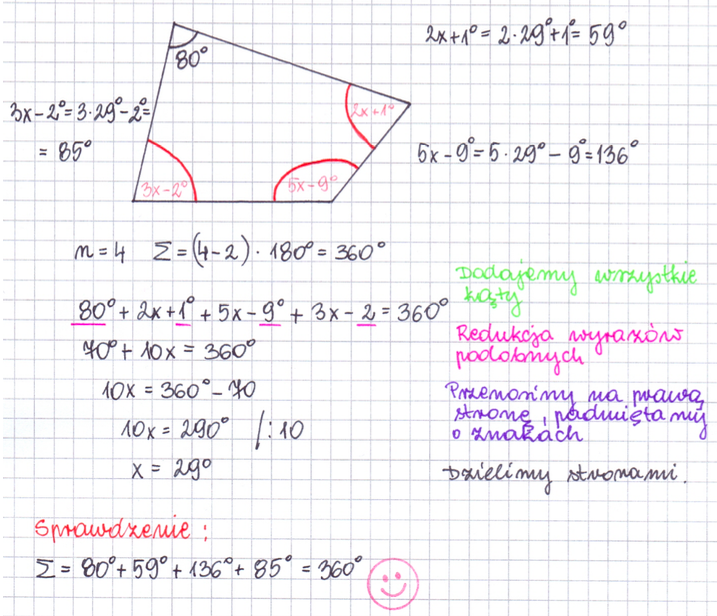 2x+1° = 2·29°+1° = 59°
80°
3x-2° = 3·29°-2° =
= 85°
2x+1°
5x-9° = 5·29° - 9° = 136°
3x-2°
5x-9°
n=4 Σ = (4-2) · 180° = 360°
Dodajemy wszystkie
kąty
80° + 2x+1° + 5x-9° + 3x-2 = 360°
Redukcja wyrazów
podobnych
70° + 10x = 360°
10x = 360° - 70
Przenosimy na prawą
stronę, pamiętamy
o znakach
10x = 290° /:10
x = 29°
Dzielimy stronami.
Sprawdzenie:
Σ = 80° + 59° + 136° + 85° = 360°